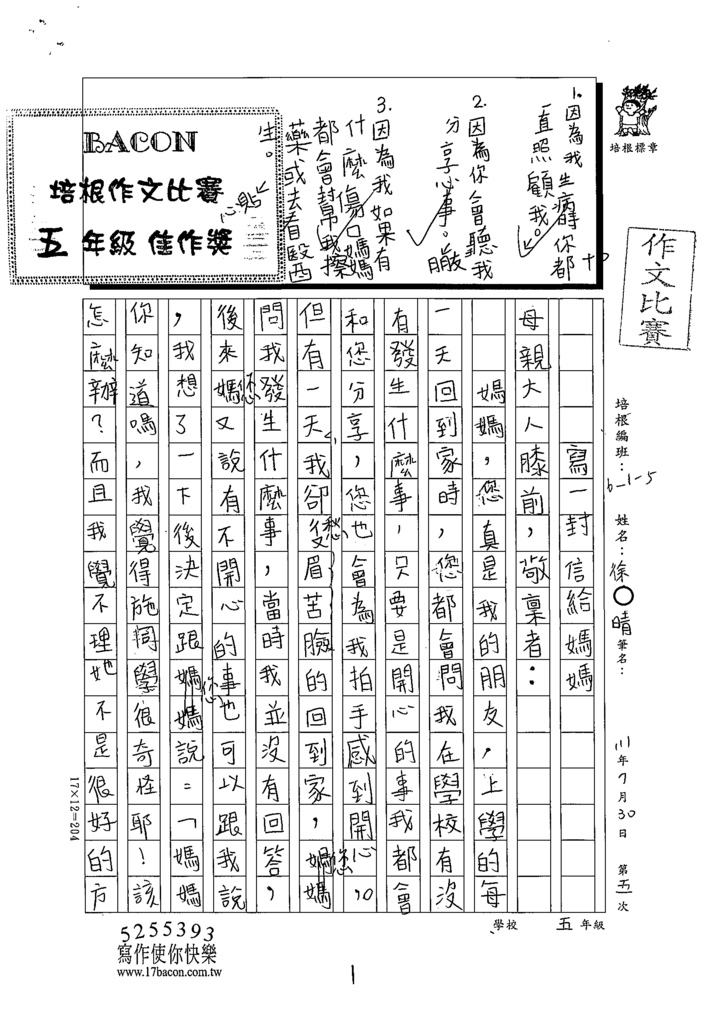 培根標章
作文比賽
1.因為我生病你都
一直照顧我。
2.因為你會聽我
分享心事。
3.因為我如果有
什麼傷口媽媽
都會幫我擦
藥或去看醫
生。
貼心
BACON
培根作文比賽
五年級 佳作獎
培根編班：6-1-5 姓名：徐○晴 筆名：
111年7月30日 第五次
學校 五年級
寫一封信給媽媽
母親大人膝前，敬稟者：
媽媽，您真是我的朋友，上學的每
一天回到家時，您都會問我在學校有沒
有發生什麼事，只要是開心的事我都會
和您分享，您也會為我拍手感到開心。
但有一天，我卻愁眉苦臉的回到家，媽媽您
問我發生什麼事，當時我並沒有回答，
後來媽您又說有不開心的事也可以跟我說
，我想了一下後決定跟媽媽您說：「媽媽
你知道嗎，我覺得施同學很奇怪耶！該
怎麼辦？而且我覺不理她不是很好的方
17×12=204
5255393
寫作使你快樂
www.17bacon.com.tw
1